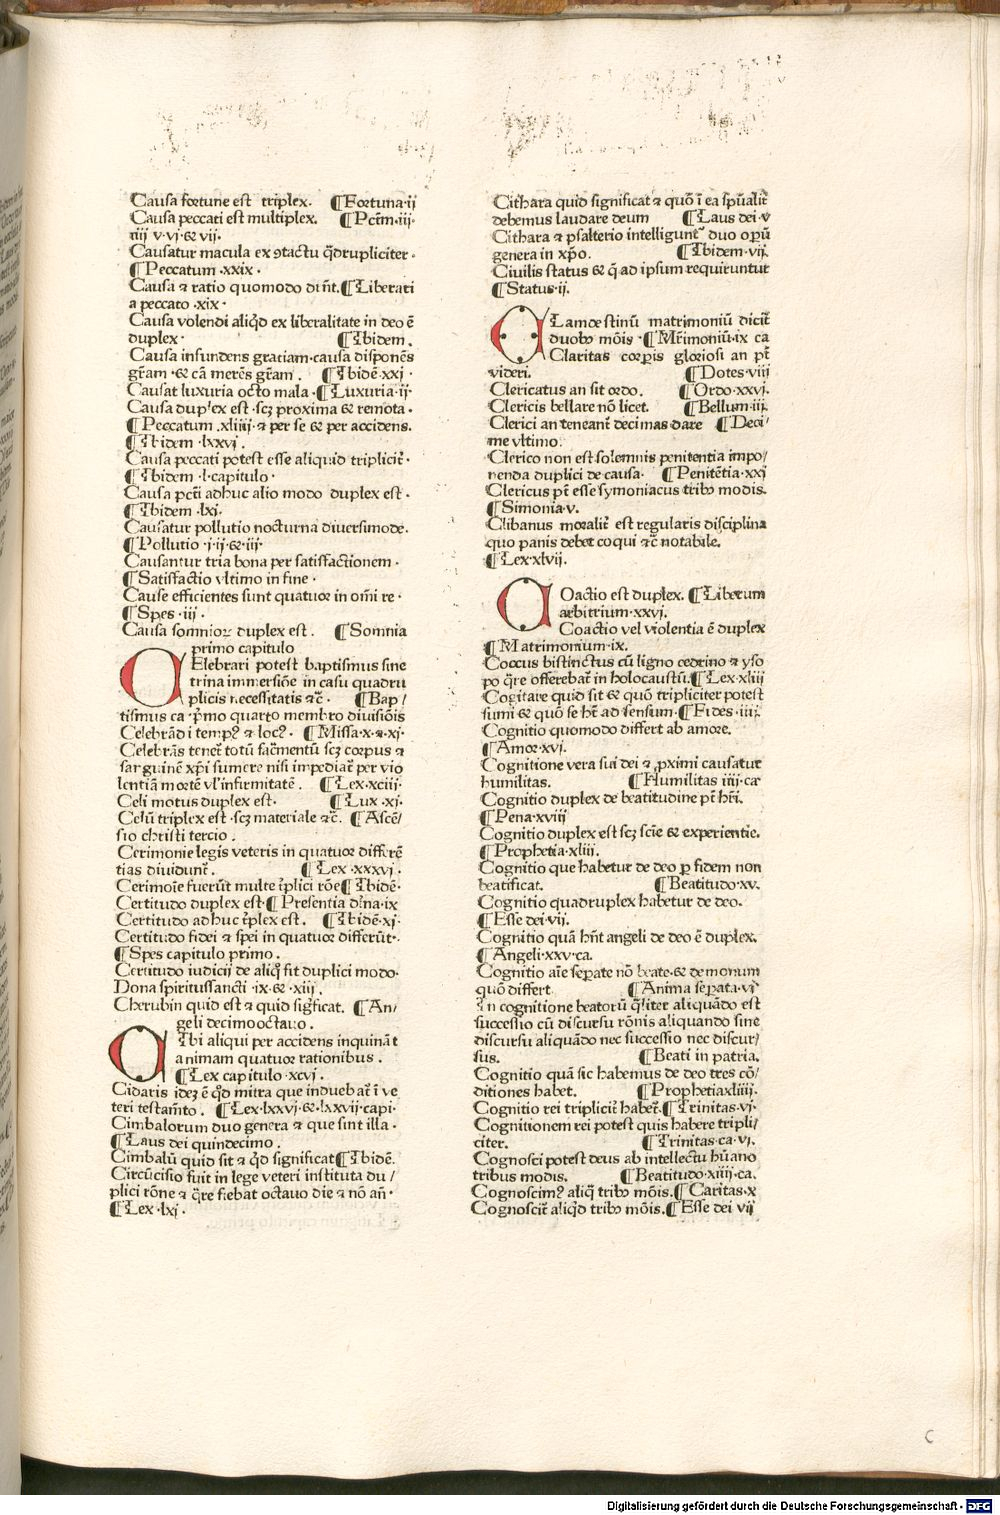 Causa fortune est triplex. ¶Fortuna·ii
Causa peccati est multiplex. ¶Pctm·iii·
iiii v·vi·et vii·
Causatur macula ex ꝯtactu q̃drupliciter·
¶Peccatum·xxix·
Causa ⁊ ratio quomodo diñt.¶Liberati
a peccato·xix·
Causa volendi aliqd ex liberalitate in deo ẽ
duplex· ¶Ibidem.
Causa infundens gratiam·causa disponẽs
gr̃am·et cã merẽs gr̃am. ¶Ibidẽ·xxj·
Causat luxuria octo mala·¶Luxuria·ij·
Causa duplex est·scꝫ proxima et remota·
¶Peccatum.xliiij·⁊ per se et per accidens.
¶Ibidem·lxxvj.
Causa peccati potest esse aliquid triplicit̃·
¶Ibidem·l·capitulo·
Causa pcti adhuc alio modo duplex est·
¶Ibidem·lxj.
Causatur pollutio nocturna diuersimode.
¶Pollutio·j·ij·et·iij·
Causantur tria bona per satisfactionem·
¶Satisfactio vltimo in fine·
Cause efficientes sunt quatuor in om̃i re·
¶Spes·iij·
Causa somnioꝝ duplex est. ¶Somnia
primo capitulo
CElebrari potest baptismus sine
trina immersiõe in casu quadru
plicis necessitatis ⁊c̃· ¶Bap/
tismus ca·p̃mo quarto membro diuisiõis
Celebrãd i tempꝰ ⁊ locꝰ. ¶Missa·x·⁊·xj·
Celebrãs tenet̃ totũ sac̃mentũ scꝫ corpus ⁊
sanguinẽ xp̃i sumere nisi impediat̃ per vio
lentiã mortẽ vl' infirmitatẽ. ¶Lex·xciij·
Celi motus duplex est· ¶Lux·xj·
Celũ triplex est·scꝫ materiale ⁊c̃. ¶Ascẽ/
sio christi tercio.
Cerimonie legis veteris in quatuor differẽ
tias diuidunt̃. ¶Lex·xxxvj.
Cerimoĩe fuerũt multe t̃plici rõe¶Ibidẽ·
Certitudo duplex est·¶Presentia d'na·ix
Certitudo adhuc t̃plex est. ¶Ibidẽ·xj·
Certitudo fidei ⁊ spei in quatuor differũt·
¶Spes capitulo primo.
Certitudo iudicij de aliqͦ fit duplici modo·
Dona spiritussancti·ix·et·xiij.
Cherubin quid est ⁊ quid sig̃ficat. ¶An/
geli decimooctauo.
CIbi aliqui per accidens inquinãt
animam quatuor rationibus.
¶Lex capitulo·xcvj.
Cidaris idẽ ẽ qd mitra que induebat̃ ĩ ve
teri testam̃to. ¶Lex·lxxvj·et·lxxvij·capi·
Cimbalorum duo genera ⁊ que sint illa·
¶Laus dei quindecimo.
Cimbalũ quid sit ⁊ qd significat¶Ibidẽ.
Circũcisio fuit in lege veteri instituta du/
plici rõne ⁊ q̃re fiebat octauo die ⁊ nõ añ·
¶Lex·lxj.
Cithara quid significat ⁊ quõ ĩ ea sp̃ualit̃
debemus laudare deum ¶Laus dei·v
Cithara ⁊ psalterio intelligunt̃ duo operũ
genera in xp̃o. ¶Ibidem·vij.
Ciuilis status et q̃ ad ipsum requiruntur
¶Status·ij.
CLamdestinũ matrimoniũ dicit̃
duobꝰ mõis·¶Mr̃imoniũ·ix ca
Claritas corpis gloriosi an pt̃
videri. ¶Dotes·viij
Clericatus an sit ordo. ¶Ordo·xxvj.
Clericis bellare nõ licet. ¶Bellum·iij.
Clerici an teneant̃ decimas dare ¶Deci/
me vltimo.
Clerico non est solemnis penitentia impo/
nenda duplici de causa. ¶Penitẽtia·xxj
Clericus pt̃ esse symoniacus tribꝰ modis.
¶Simonia·v.
Clibanus moralit̃ est regularis disciplina
quo panis debet coqui ⁊c̃ notabile.
¶Lex·xlvij.
COactio est duplex. ¶Liberum
arbitrium·xxvj.
Coactio vel violentia ẽ duplex
¶Matrimonium·ix.
Coccus bistinctus cũ ligno cedrino ⁊ yso
po q̃re offerebat̃ in holocaustũ.¶Lex·xliij
Cogitare quid sit et quõ tripliciter potest
sumi et quõ se ht̃ ad sensum·¶Fides·iij.
Cognitio quomodo differt ab amore.
¶Amor·xvj.
Cognitione vera sui dei ⁊ ꝓximi causatur
humilitas. ¶Humilitas iiij·ca
Cognitio duplex de beatitudine pt̃ hr̃i.
¶Pena·xviij
Cognitio duplex est scꝫ scĩe et experientie.
¶Prophetia·xliij.
Cognitio que habetur de deo ꝑ fidem non
beatificat. ¶Beatitudo·xv.
Cognitio quadruplex habetur de deo.
¶Esse dei·vij.
Cognitio quã hñt angeli de deo ẽ duplex.
¶Angeli·xxv·ca.
Cognitio aĩe sepate nõ beate·et demonum
quõ differt ¶Anima sepata·vj
In cognitione beatorũ q̃liter aliquãdo est
successio cũ discursu rõnis aliquando sine
discursu aliquãdo nec successio nec discur/
sus. ¶Beati in patria.
Cognitio quã sic habemus de deo tres cõ/
ditiones habet. ¶Prophetiaxliiij.
Cognitio rei triplicit̃ habet̃.¶Trinitas·vj·
Cognitionem rei potest quis habere tripli/
citer. ¶Trinitas·ca·vj.
Cognosci potest deus ab intellectu hũano
tribus modis. ¶Beatitudo·xiiij·ca.
Cognoscimꝰ aliqd tribꝰ mõis.¶Caritas·x
Cognoscit̃ aliqd tribꝰ mõis.¶Esse dei vij
C
Digitalisierung gefördert durch die Deutsche Forschungsgemeinschaft · DFG